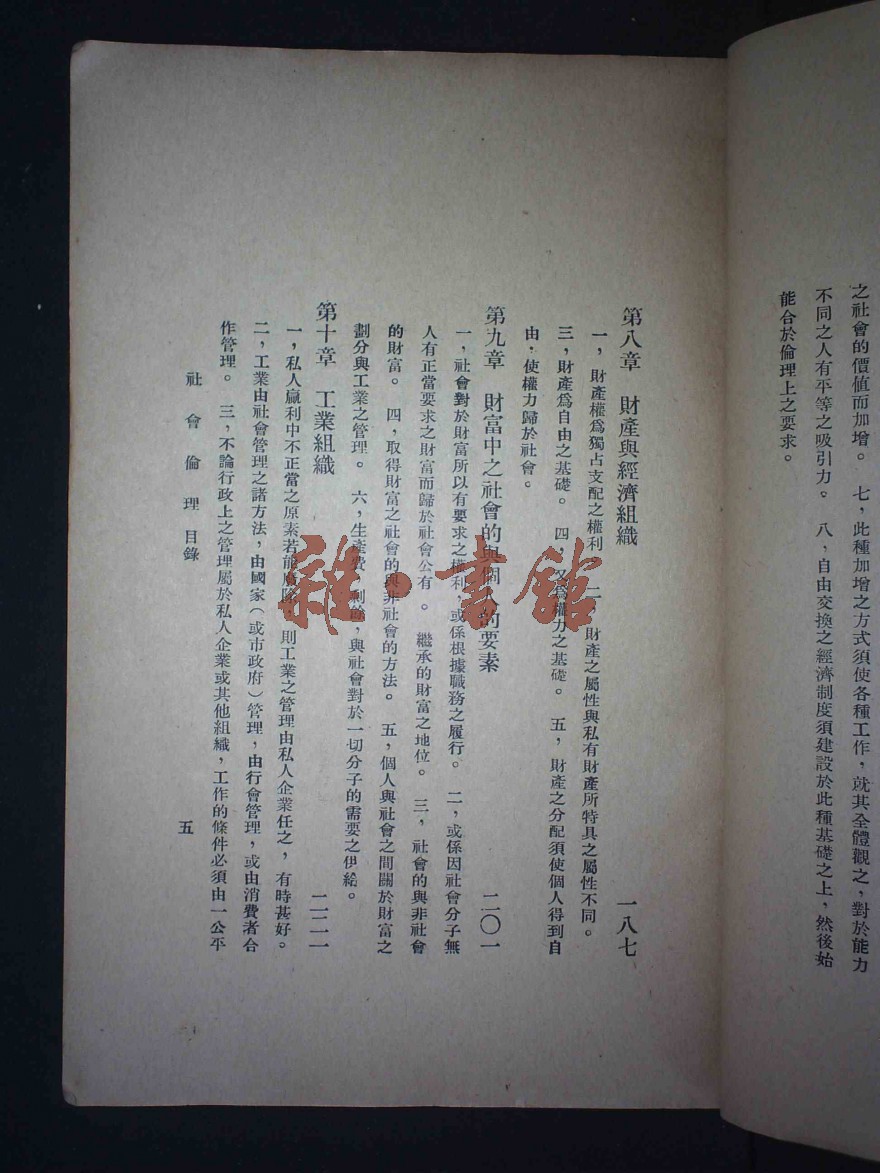 之社會的價値而加增。　七，此種加增之方式須使各種工作，就其全體觀之，對於能力
不同之人有平等之吸引力。　八，自由交換之經濟制度須建設於此種基礎之上，然後始
能合於倫理上之要求。
第八章　財產與經濟組織　一八七
一，財產權爲獨占支配之權利　二，財產之屬性與私有財產所特具之屬性不同。
三，財產爲自由之基礎。　四，爲權力之基礎。　五，財產之分配須使個人得到自
由，使權力歸於社會。
第九章　財富中之社會的與個人的要素　二〇一
一，社會對於財富所以有要求之權利，或係根據職務之履行。　二，或係因社會分子無
人有正當要求之財富而歸於社會公有。　繼承的財富之地位。　三，社會的與非社會
的財富。　四，取得財富之社會的與非社會的方法。　五，個人與社會之間關於財富之
劃分與工業之管理。　六，生產費，剩餘，與社會對於一切分子的需要之供給。
第十章　工業組織　二二一
一，私人贏利中不正當之原素若能廢除，則工業之管理由私人企業任之，有時甚好。
二，工業由社會管理之諸方法，由國家（或市政府）管理，由行會管理，或由消費者合
作管理。　三，不論行政上之管理屬於私人企業或其他組織，工作的條件必須由一公平
社會倫理　目錄
五
雜·書館